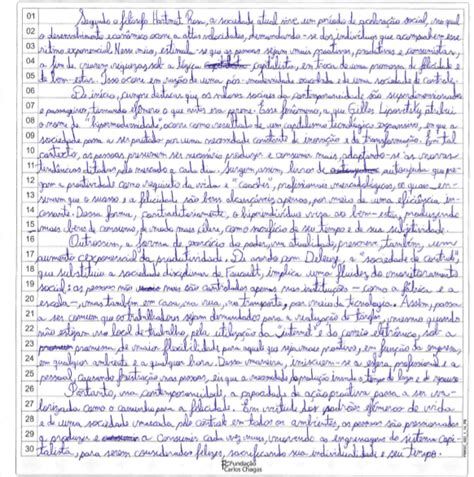 01 Segundo o filósofo Hartmut Rosa, a sociedade atual vive um período de aceleração social, no qual
02 o desenvolvimento econômico ocorre a altas velocidades, demandando-se dos indivíduos que acompanhem esse
03 ritmo exponencial. Nesse meio, estimula-se que as pessoas sejam mais produtivas, produtivas e consumistas,
04 a fim de gerarem riquezas sob a lógica capitalista, em troca de uma promessa de felicidade e
05 de bem-estar. Isso ocorre em razão de uma pós-modernidade e de uma sociedade de controle.
06 De início, cumpre destacar que os valores sociais da contemporaneidade são superdimensionados
07 e passageiros, tornando efêmero o que antes era perene. Esse fenômeno, a que Gilles Lipovetsky atribui
08 o nome de "hipermodernidade", ocorre como resultado de um capitalismo tecnológico expansivo, em que a
09 sociedade passa a ser pautada por uma necessidade constante de inovação e de transformação. Em tal
10 contexto, as pessoas presumem ser necessário produzir e consumir mais, adaptando-se às novas
11 tendências ditadas pelo mercado a cada dia. Surgem, assim, livros de autoajuda que pre-
12 gam a produtividade como requisito da vida e "coaches", profissionais mercadológicos, os quais
13 que o sucesso e a felicidade são bens alcançáveis apenas por meio de uma eficiência in-
14 cessante. Dessa forma, contraditoriamente, o hiperindivíduo visa ao bem-estar produzindo
15 mais bens de consumo, de modo mais clara, com o sacrifício de seu tempo e de sua subjetividade.
16 Outrossim, a forma de exercício do poder, na atualidade, promove, também, um
17 aumento exponencial da produtividade. De acordo com Deleuze, a "sociedade de controle",
18 que substituiu a sociedade disciplinar de Foucault, implica uma fluidez do monitoramento
19 social: as pessoas não mais são controladas apenas nas instituições - como a fábrica e a
20 escola -, mas também em casa, na rua, no transporte, por meio da tecnologia. Assim, passa
21 a ser comum que os trabalhadores sejam demandados para a realização de tarefas, mesmo quando
22 não estejam no local de trabalho, pela utilização da "internet" e do correio eletrônico, sob a
23 promessa de maior flexibilidade para aquele que seja mais produtivo, em função da empresa,
24 em qualquer ambiente e a qualquer hora. Dessa maneira, imiscuem-se a esfera profissional e a
25 pessoal, causando frustração nas pessoas, eis que a necessidade de produção invade o tempo de lazer e de repouso.
26 Portanto, na contemporaneidade, a capacidade de ação produtiva passa a ser va-
27 lorizada como o caminho para a felicidade. Em virtude dos padrões efêmeros de vida
28 e de uma sociedade vinculada pelo controle em todos os ambientes, as pessoas são pressionadas
29 a produzir e a consumir cada vez mais, movendo as engrenagens do sistema capi-
30 talista, para serem consideradas felizes, sacrificando sua individualidade e seu tempo.
Fundação
Carlos Chagas